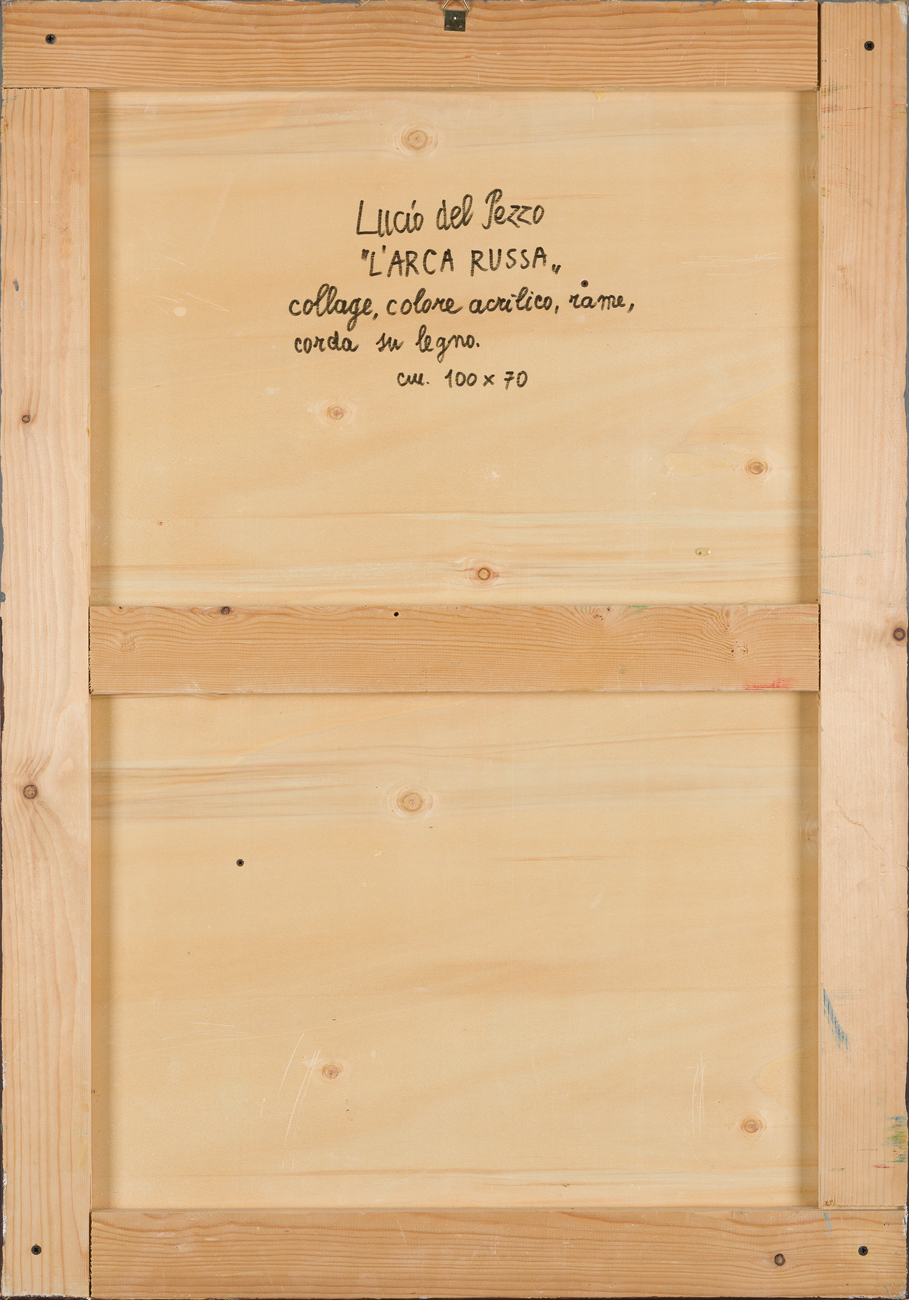 Lucio del Pezzo
"L'ARCA RUSSA"
collage, colore acrilico, rame,
corda su legno.
cm. 100 x 70